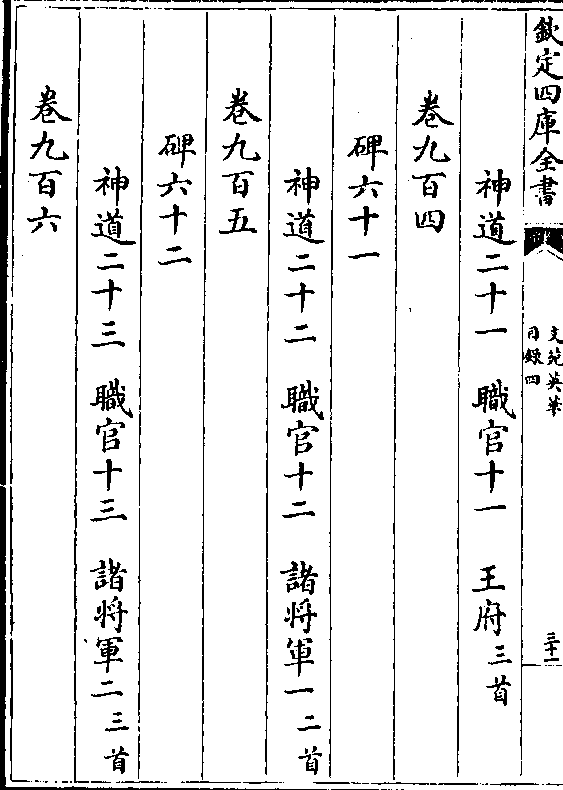 欽定四庫全書
文苑英華
目錄四
三十一
神道二十一　職官十一　王府三首
卷九百四
碑六十一
神道二十二　職官十二　諸將軍一二首
卷九百五
碑六十二
神道二十三　職官十三　諸將軍二三首
卷九百六